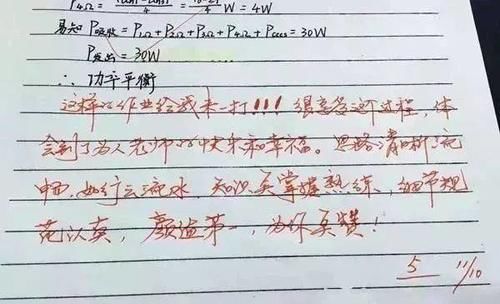 P₄Ω = 4 W = 4W
易知 P吸收 = P₁Ω + P₂Ω + P₃Ω + P₄Ω + Pcccs = 30W
P发出 = 30W
∴ 功率平衡
这样的作业给我来一打!!! 很享受这个过程, 体
会到了为人老师的快乐和幸福。思路清晰
如行云流水, 知识关掌握熟练, 细节规
范认真, 颜值第一, 为你点赞!
5 11/10